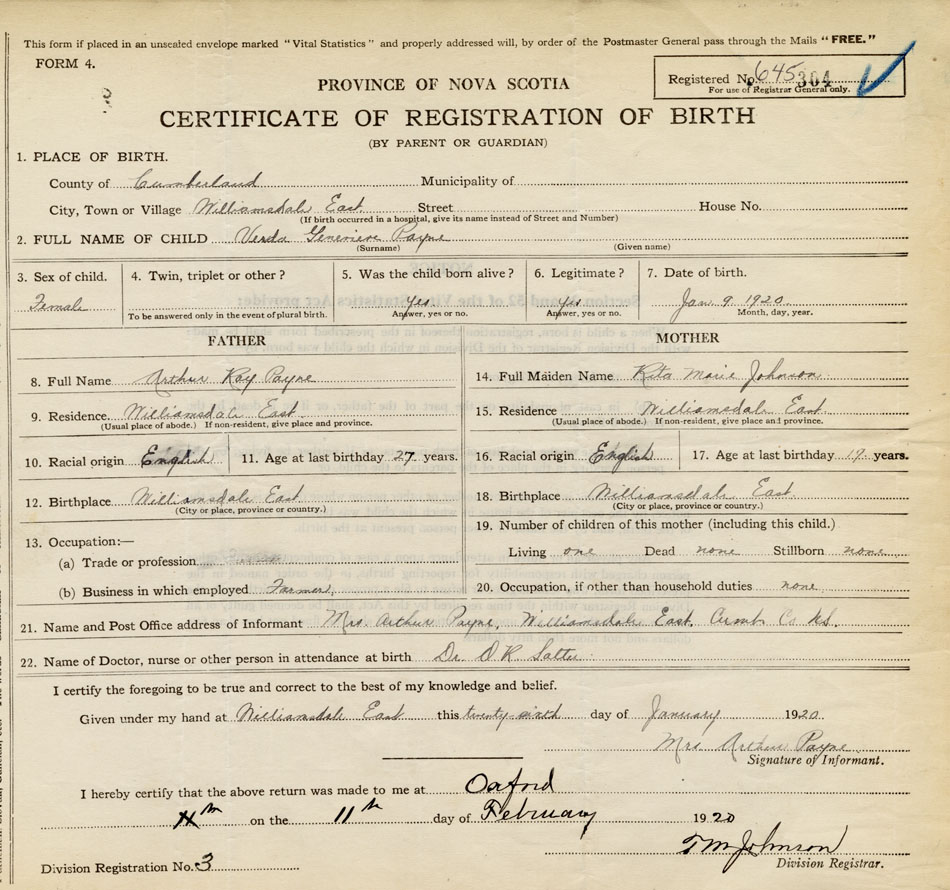 This form if placed in an unsealed envelope marked "Vital Statistics" and properly addressed will, by order of the Postmaster General pass through the Mails "FREE."
FORM 4.
Registered No. 645 304
For use of Registrar General only.
PROVINCE OF NOVA SCOTIA
CERTIFICATE OF REGISTRATION OF BIRTH
(BY PARENT OR GUARDIAN)
1. PLACE OF BIRTH.
County of Cumberland Municipality of
City, Town or Village Williamsdale East Street House No.
(If birth occurred in a hospital, give its name instead of Street and Number)
2. FULL NAME OF CHILD Verda Genevieve Payne
(Surname) (Given name)
3. Sex of child. 4. Twin, triplet or other? 5. Was the child born alive? 6. Legitimate? 7. Date of birth.
Female Yes Yes Jan. 9 1920
To be answered only in the event of plural birth. Answer, yes or no. Answer, yes or no. Month, day, year.
FATHER MOTHER
8. Full Name Arthur Roy Payne 14. Full Maiden Name Rita Marie Johnson
9. Residence. Williamsdale East. 15. Residence Williamsdale East.
(Usual place of abode.) If non-resident, give place and province. (Usual place of abode.) If non-resident, give place and province.
10. Racial origin English 11. Age at last birthday 27 years. 16. Racial origin English 17. Age at last birthday 19 years.
12. Birthplace Williamsdale East 18. Birthplace Williamsdale East.
(City or place, province or country.) (City or place, province or country.)
13. Occupation:— 19. Number of children of this mother (including this child.)
(a) Trade or profession Living one Dead none Stillborn none
(b) Business in which employed Farmer, 20. Occupation, if other than household duties none
21. Name and Post Office address of Informant Mrs. Arthur Payne, Williamsdale East, Cumb. Co. N.S.
22. Name of Doctor, nurse or other person in attendance at birth Dr. D R
I certify the foregoing to be true and correct to the best of my knowledge and belief.
Given under my hand at Williamsdale East this twenty sixth day of January 1920.
Mrs Arthur Payne
Signature of Informant.
I hereby certify that the above return was made to me at Oxford
on the 11th day of February 1920
T M Johnson
Division Registration No. 3 Division Registrar.